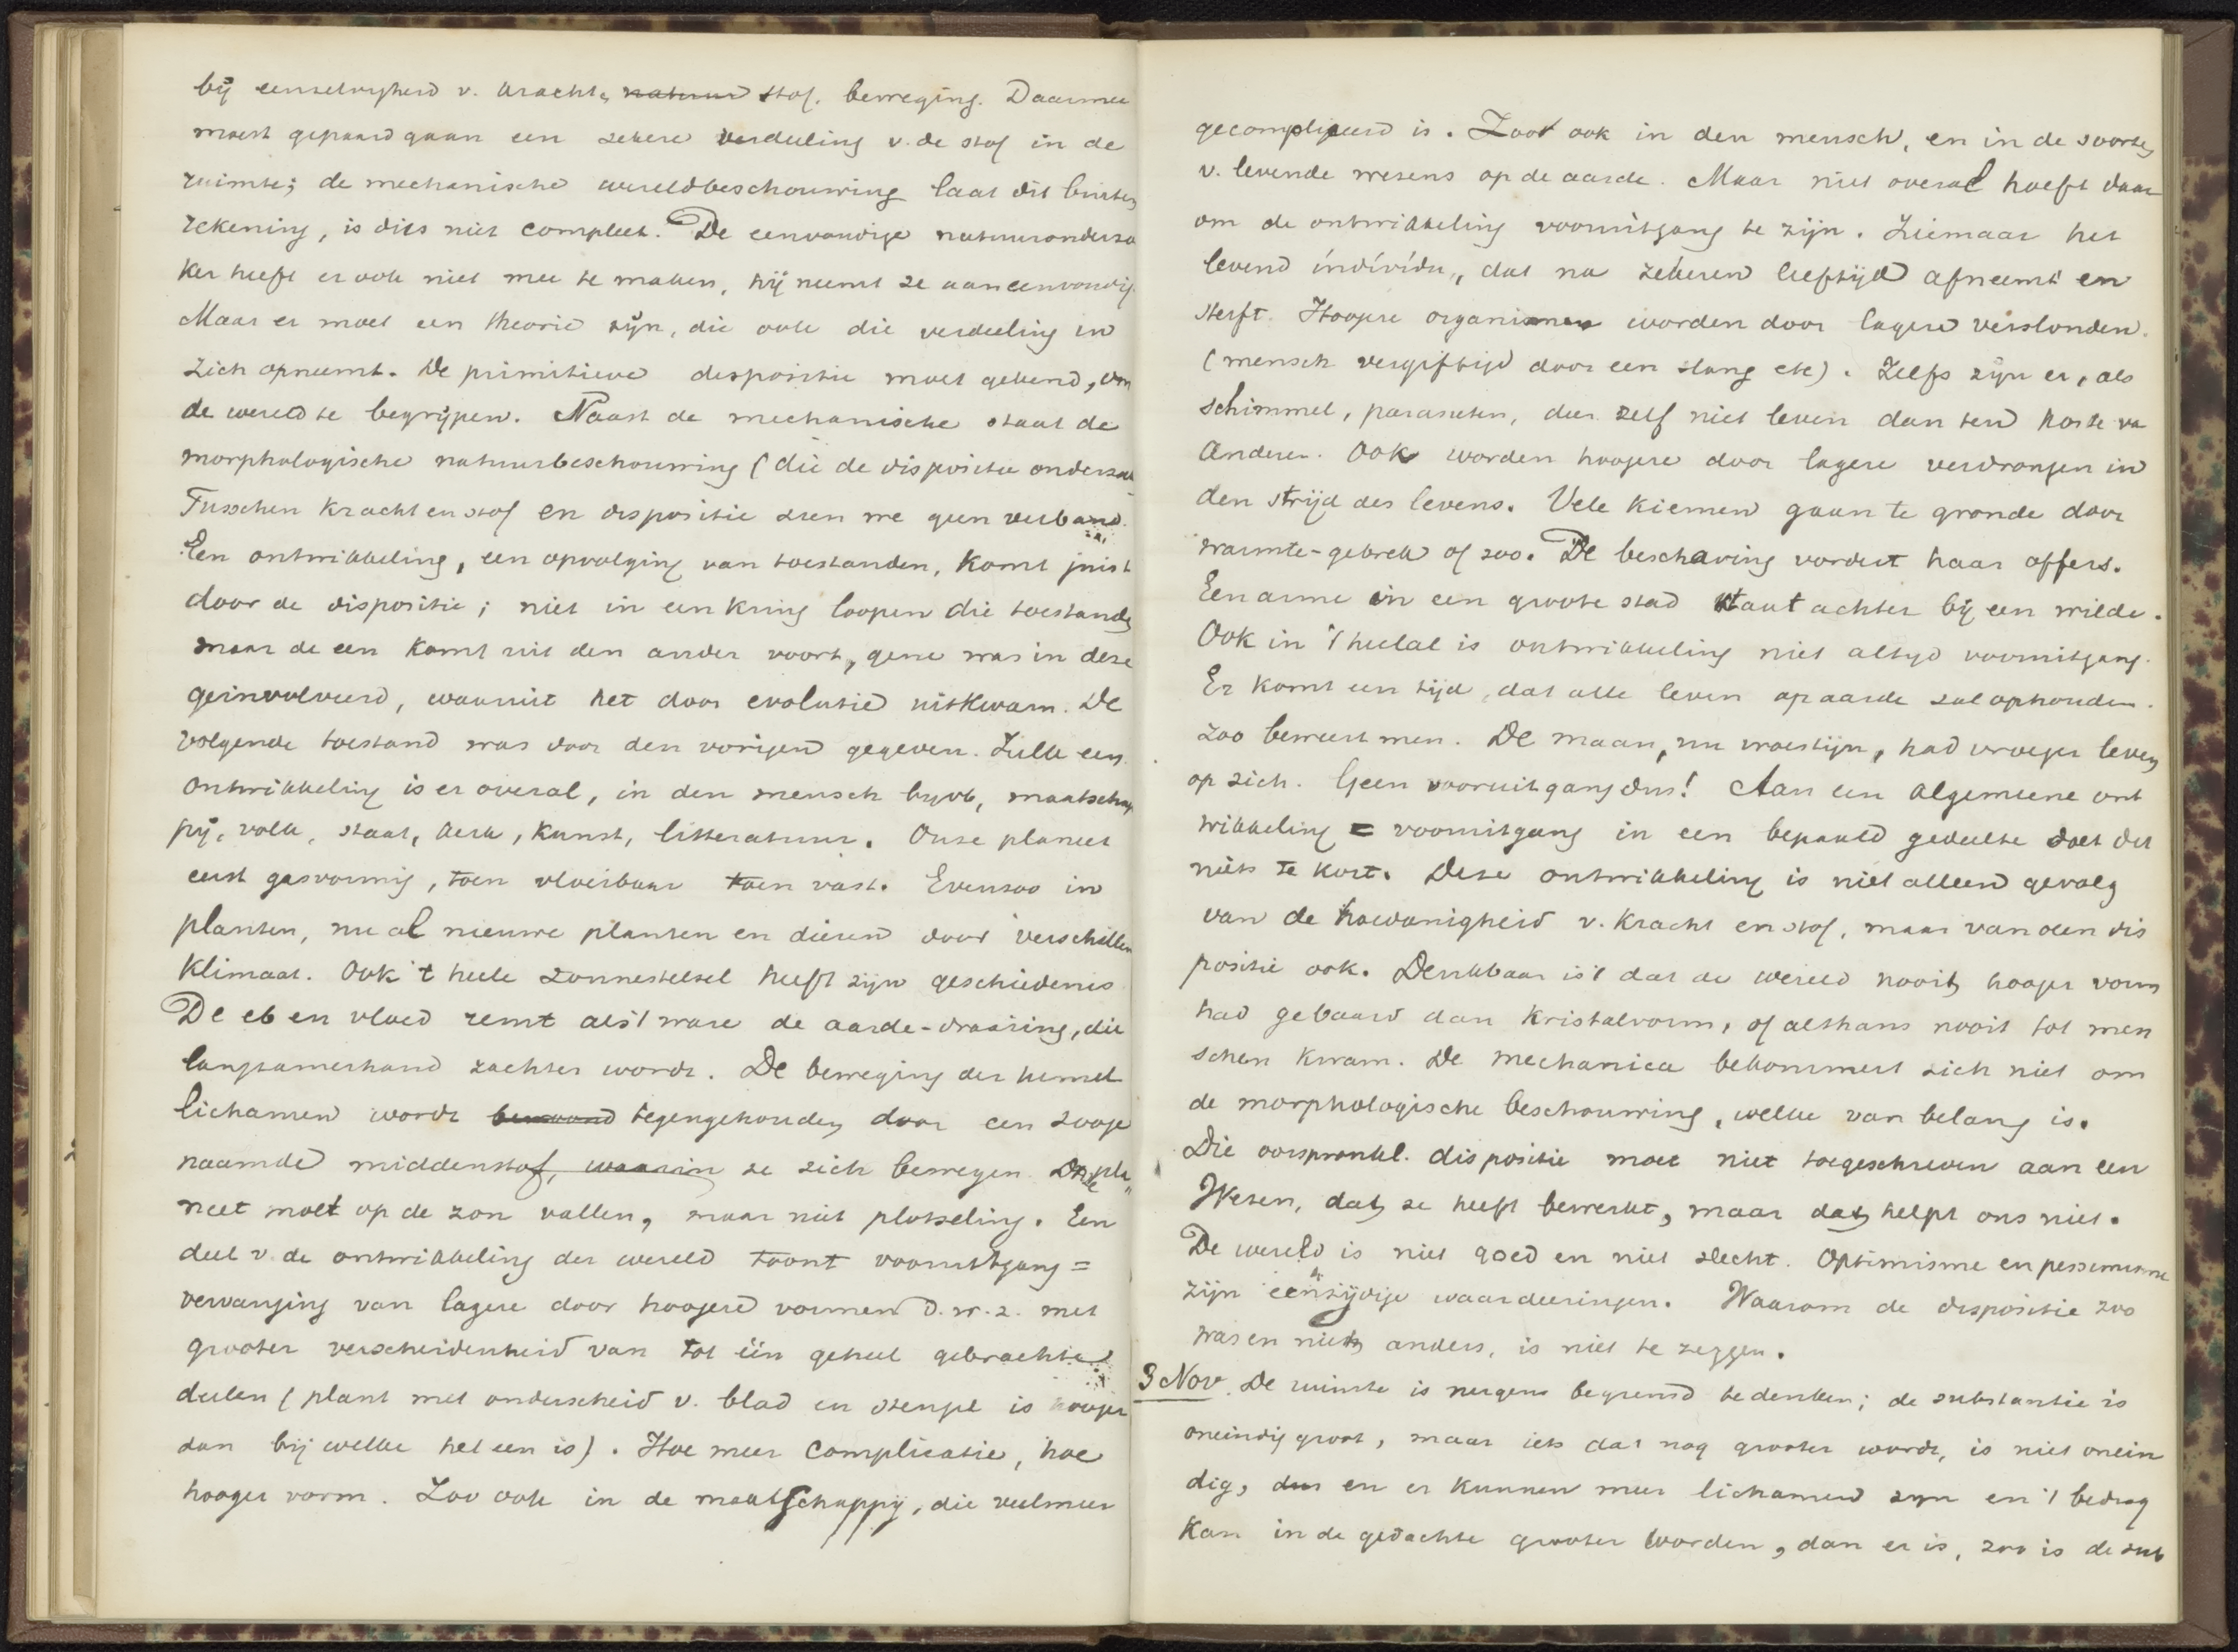 bij eenzelvigheid v. kracht, natuur stof, beweging. Daarmee
moest gepaard gaan een zekere verdeeling v. de stof in de
ruimte; de mechanische wereldbeschouwing laat dit buiten
rekening, is dus niet compleet. De eenvoudige natuuronderzoe
ker heeft er ook niet mee te maken, hij neemt ze aan eenvoudig.
Maar er moet een theorie zijn, die ook die verdeeling in
zich opneemt. De primitieve dispositie moet gekend, om
de wereld te begrijpen. Naast de mechanische staat de
morphologische natuurbeschouwing (die de dispositie onderzoekt
Tusschen kracht en stof en dispositie zien we geen verband.
Een ontwikkeling, een opvolging van toestanden, komt juist
door de dispositie; niet in een kring loopen die toestanden
maar de een komt uit den ander voort, gene was in deze
geinvolveerd, waaruit het door evolutie uitkwam. De
volgende toestand was door den vorigen gegeven. Zulk een
ontwikkeling is er overal, in den mensch bijvb, maatschap
pij, volk, staat, kerk, kunst, litteratuur. Onze planeet
eerst gasvormig, toen vloeibaar toen vast. Evenzoo in
planten, nu al nieuwe planten en dieren door verschillen
klimaat. Ook 't heele zonnestelsel heeft zijn geschiedenis
De eb en vloed remt als't ware de aarde-draaiing, die
langzamerhand zachter wordt. De beweging der hemel
lichamen wordt tegengehouden door een zooge
naamde middenstof, waarin ze zich bewegen. Onze pla
neet moet op de zon vallen, maar niet plotseling. Een
deel v. de ontwikkeling der wereld toont vooruitgang =
vervanging van lagere door hoogere vormen d.w.z. met
grooter verscheidenheid van tot één geheel gebrachte
deelen (plant met onderscheid v. blad en stengel is hooger
dan bij welke het een is). Hoe meer complicatie, hoe
hooger vorm. Zoo ook in de maatschappij, die veelmeer
gecompliceerd is. Zoo ook in den mensch, en in de soorten
v. levende wezens op de aarde. Maar niet overal hoeft daar
om de ontwikkeling vooruitgang te zijn. Zie maar het
levend individu, dat na zekeren leeftijd afneemt en
sterft. Hoogere organismen worden door lagere verslonden.
(mensch vergiftigd door een slang etc). Zelfs zijn er, als
schimmel, parasieten, die zelf niet leven dan ten koste va
anderen. Ook worden hoogere door lagere verdrongen in
den strijd des levens. Vele kiemen gaan te gronde door
warmte-gebrek of zoo. De beschaving vordert haar offers.
Een arme in een groote stad staat achter bij een wilde.
Ook in 't heelal is ontwikkeling niet altijd vooruitgang.
Er komt een tijd, dat alle leven op aarde zal ophouden.
zoo beweert men. De maan, nu woestijn, had vroeger leven
op zich. Geen vooruitgang dus! Aan een algemeene ont
wikkeling = vooruitgang in een bepaald gedeelte doet dit
niets te kort. Deze ontwikkeling is niet alleen gevolg
van de hoedanigheid v. kracht en stof, maar van den dis
positie ook. Denkbaar is 't dat de wereld nooit hooger vorm
had gebaard dan kristalvorm, of althans nooit tot men
schen kwam. De mechanica bekommert zich niet om
de morphologische beschouwing, welke van belang is.
Die oorspronkl. dispositie moet niet toegeschreven aan een
Wezen, dat ze heeft bewerkt, maar dat helpt ons niet.
De wereld is niet goed en niet slecht. Optimisme en pessimisme
zijn eenzijdige waardeeringen. Waarom de dispositie zoo
was en niets anders, is niet te zeggen.
3 Nov. De ruimte is nergens begrensd te denken; de substantie is
oneindig groot, maar iets dat nog grooter wordt, is niet onein
dig, dus en er kunnen meer lichamen zijn en 't bedrag
kan in de gedachte grooter worden, dan er is, zoo is de sub